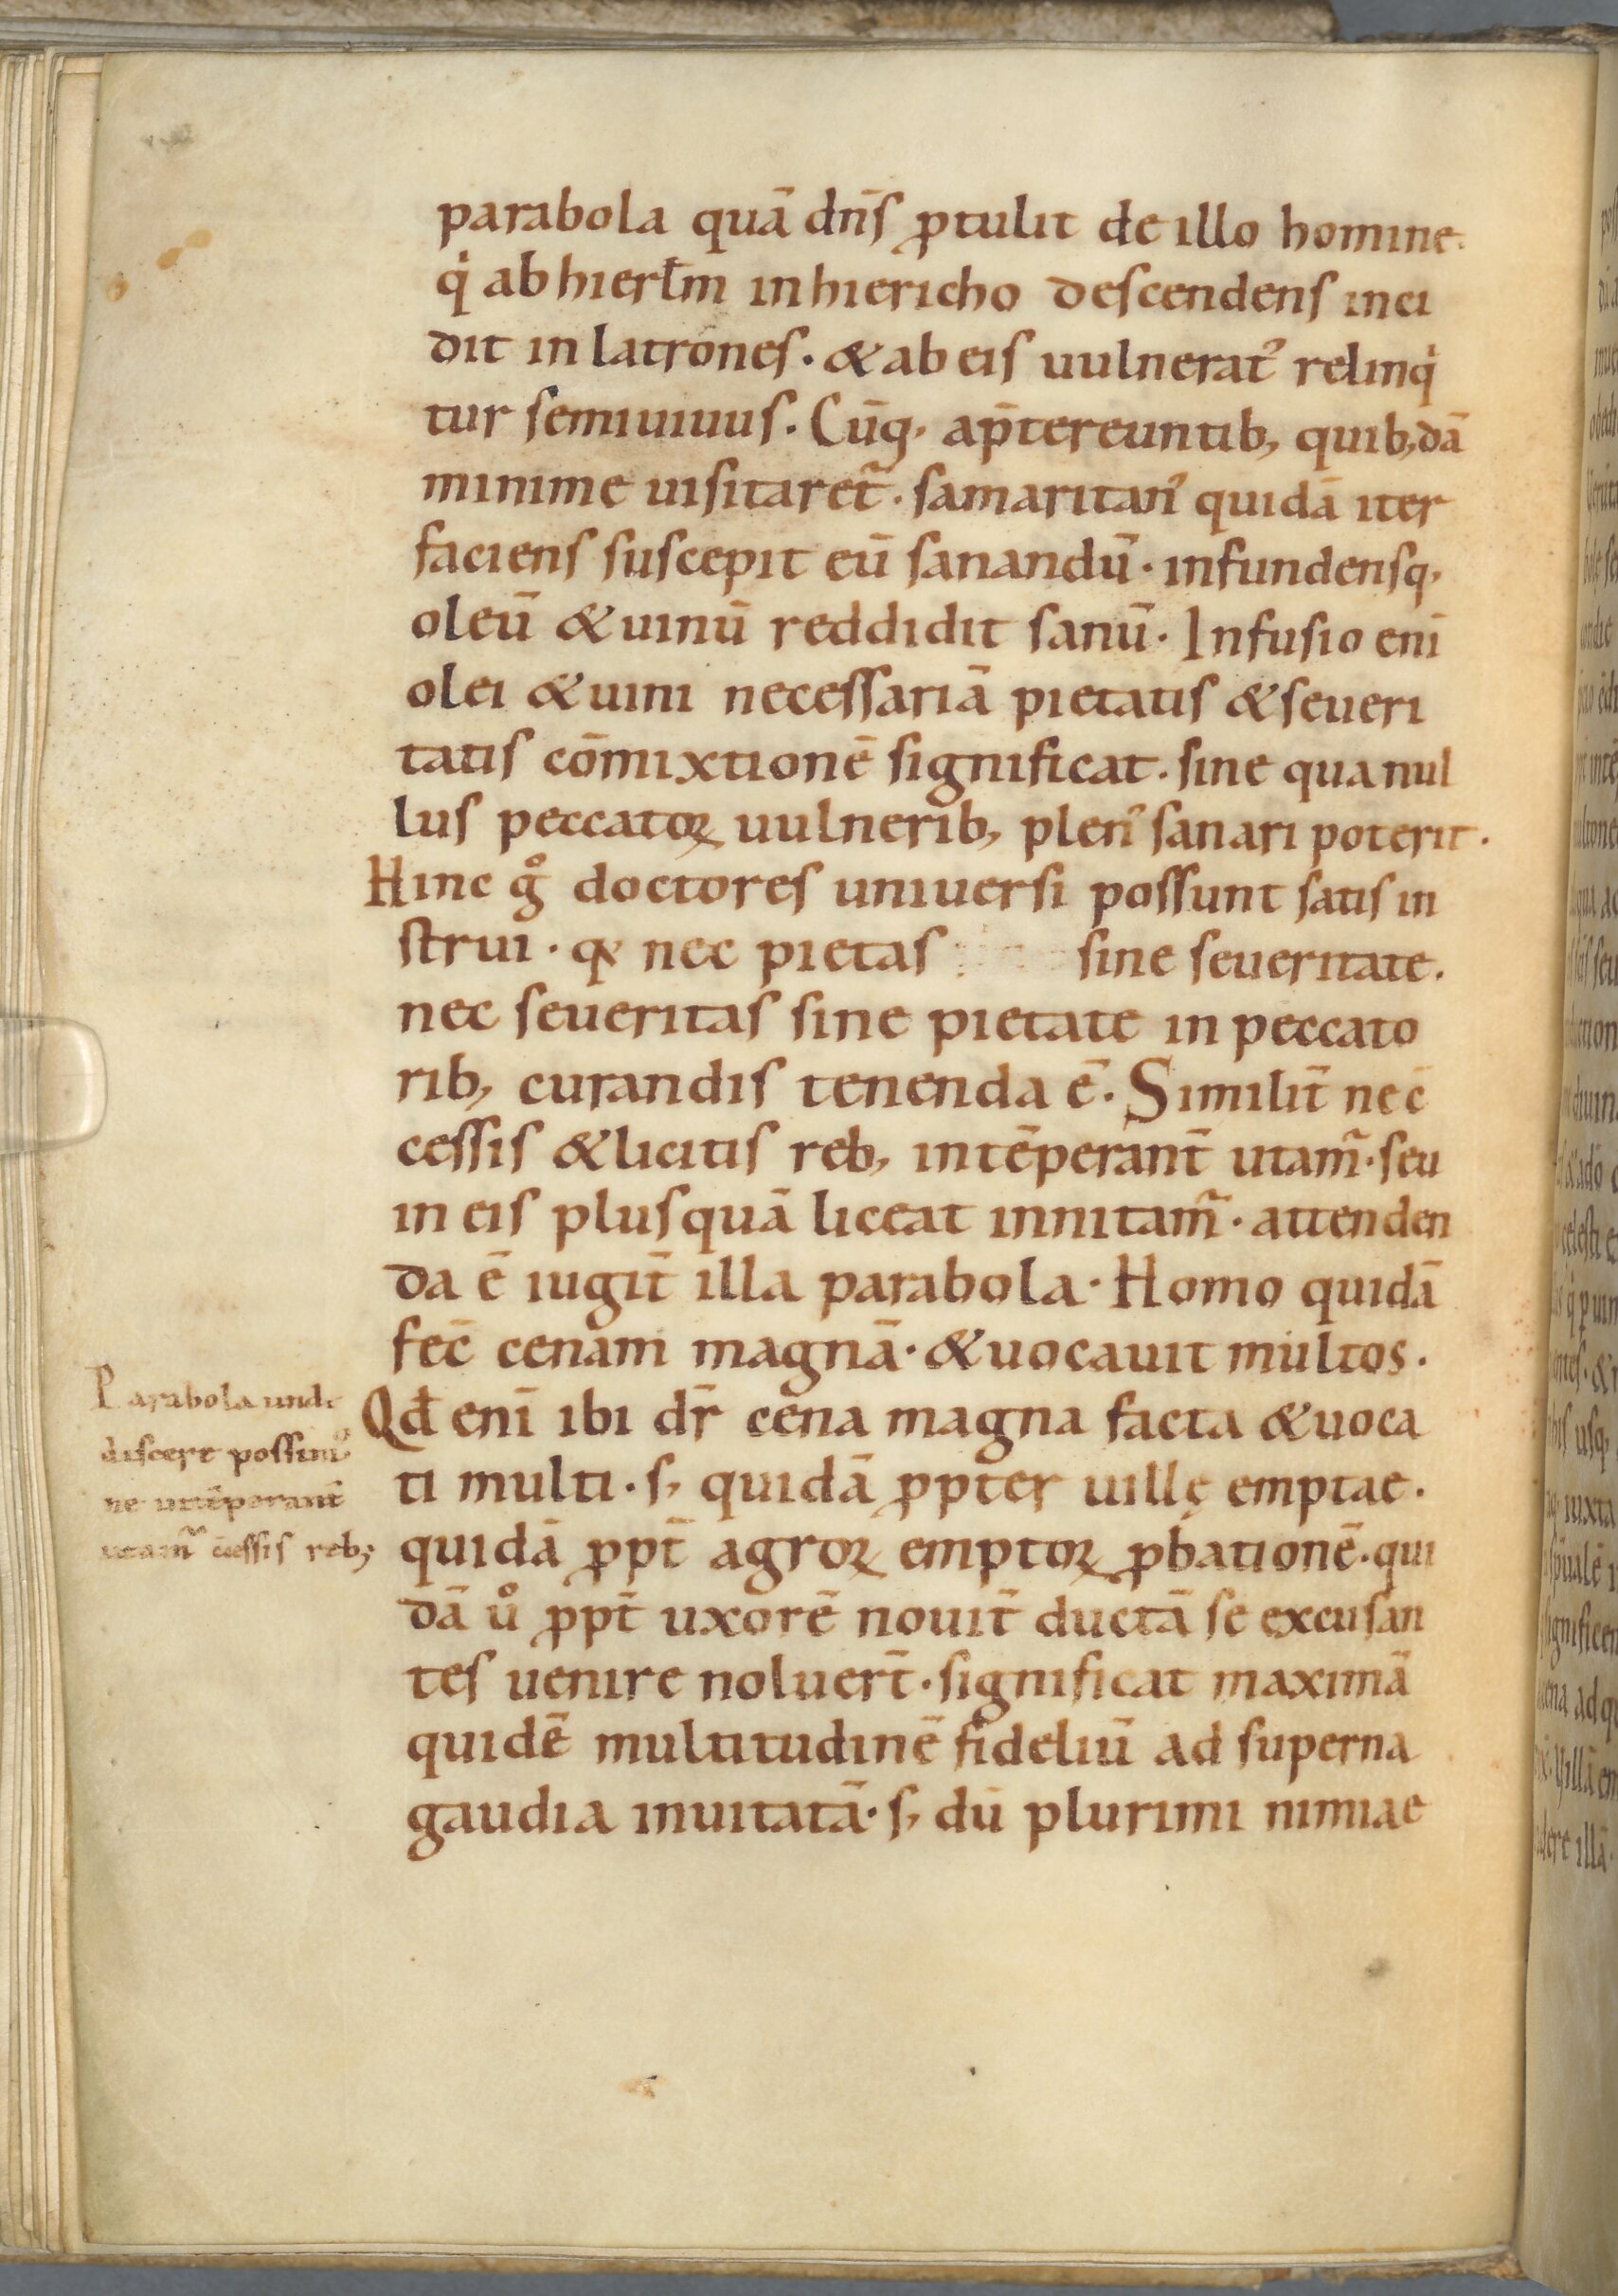 parabola quā dn̄s ꝓtulit de illo homine.
qͥ ab hierl̄m in hiericho descendens inci
dit in latrones· & ab eis uulnerat᾿ relinqͥ
tur semiuiuus. Cūq· a p̄tereuntib; quib;dā
minime uisitaret᷑· samaritan᾿ quidā iter
faciens suscepit eū sanandū· infundensq·
oleū & uinū reddidit sanū· Infusio eni̅
olei & uini necessariā pietatis & seueri
tatis cōmixtionē significat· sine qua nul
lus peccatoꝝ uulnerib; plen᾿ sanari poterit·
Hinc gͦ doctores uniuersi possunt satis in
strui· qꝫ nec pietas sine seueritate.
nec seueritas sine pietate in peccato
rib; curandis tenenda ē· Similit̄ ne c̄
cessis & licitis reb; intēperant̄ utam᷑· seu
in eis plus quā liceat innitam᷑· attenden
da ē iugit̄ illa parabola· Homo quidā
fec̄ cenam magnā· & uocauit multos·
Qđ eni̅ ibi dr̄ cena magna facta & uoca
ti multi· s; quidā ꝓpter uillę emptae·
quidā ꝓpt̄ agroꝝ emptoꝝ ꝓbationē· qui
dā uͦ ꝓpt̄ uxorē nouit̄ ductā se excusan
tes uenire noluer̄t· significat maximā
quidē multitudinē fideliū ad superna
gaudia inuitatā· s; dū plurimi nimiae
Parabola unde
discere possim᾿
ne intēperant̄
utam᷑ c̄cessis reb;